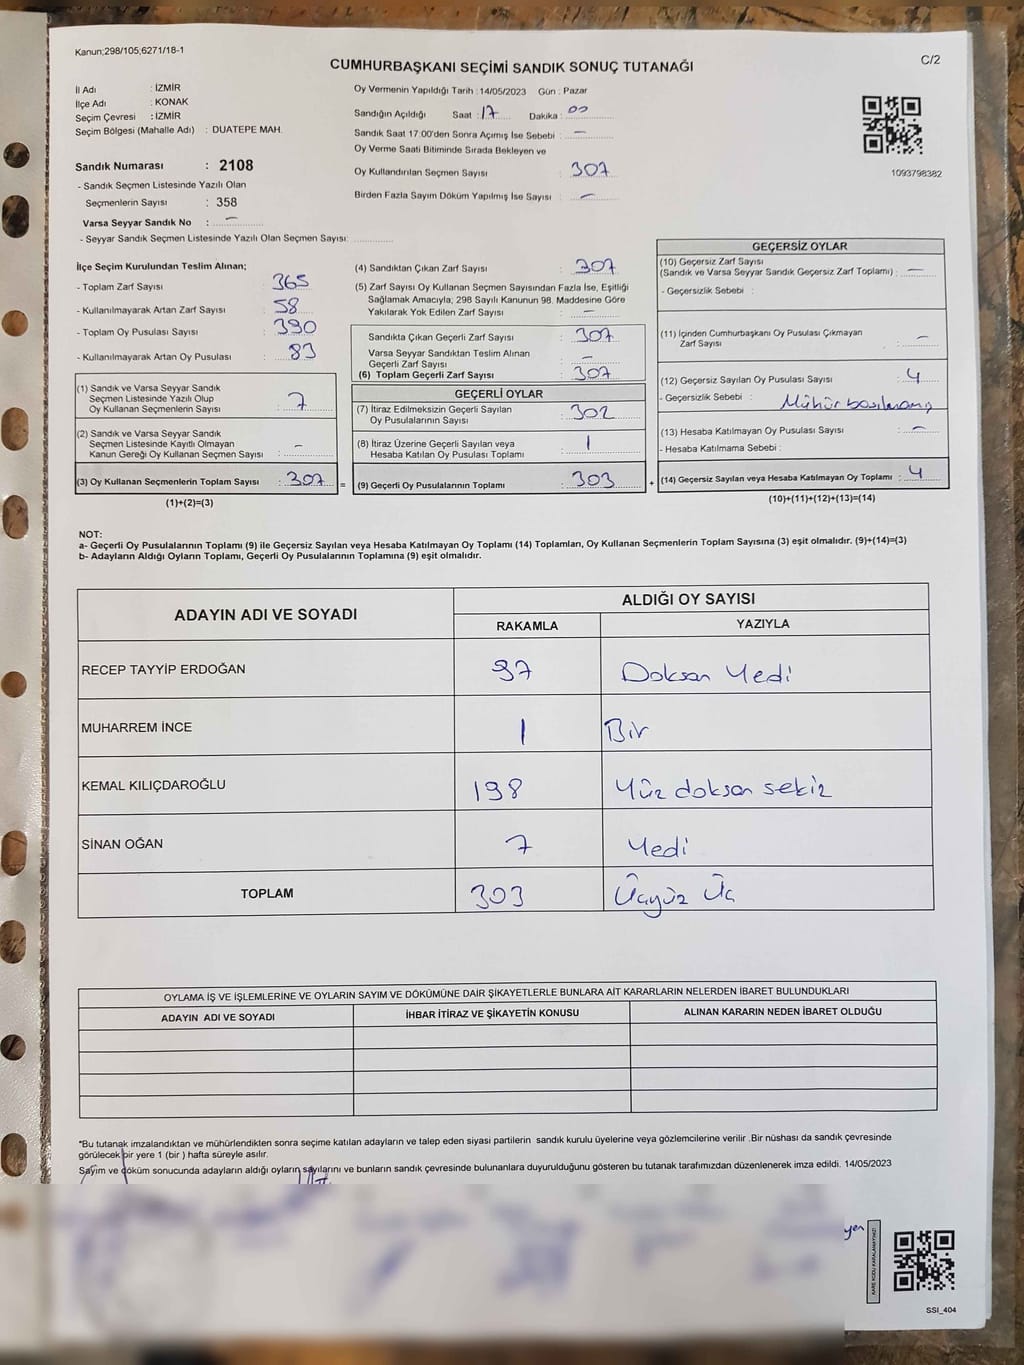 Kanun;298/105,6271/18-1
C/2
CUMHURBAŞKANI SEÇİMİ SANDIK SONUÇ TUTANAĞI
İl Adı : İZMİR
İlçe Adı : KONAK
Seçim Çevresi : İZMİR
Seçim Bölgesi (Mahalle Adı) : DUATEPE MAH.
Sandık Numarası : 2108
- Sandık Seçmen Listesinde Yazılı Olan
Seçmenlerin Sayısı : 358
Varsa Seyyar Sandık No : –
- Seyyar Sandık Seçmen Listesinde Yazılı Olan Seçmen Sayısı: ..............
Oy Vermenin Yapıldığı Tarih : 14/05/2023 Gün : Pazar
Sandığın Açıldığı Saat : 17 Dakika : 00
Sandık Saat 17:00'den Sonra Açımış İse Sebebi : –
Oy Verme Saati Bitiminde Sırada Bekleyen ve
Oy Kullandırılan Seçmen Sayısı : 307
Birden Fazla Sayım Döküm Yapılmış İse Sayısı : –
1093798382
İlçe Seçim Kurulundan Teslim Alınan;
- Toplam Zarf Sayısı : 365
- Kullanılmayarak Artan Zarf Sayısı : 58
- Toplam Oy Pusulası Sayısı : 390
- Kullanılmayarak Artan Oy Pusulası : 83
(1) Sandık ve Varsa Seyyar Sandık
Seçmen Listesinde Yazılı Olup
Oy Kullanan Seçmenlerin Sayısı : 7
(2) Sandık ve Varsa Seyyar Sandık
Seçmen Listesinde Kayıtlı Olmayan
Kanun Gereği Oy Kullanan Seçmen Sayısı : –
(3) Oy Kullanan Seçmenlerin Toplam Sayısı : 307 =
(1)+(2)=(3)
(4) Sandıktan Çıkan Zarf Sayısı : 307
(5) Zarf Sayısı Oy Kullanan Seçmen Sayısından Fazla İse, Eşitliği
Sağlamak Amacıyla, 298 Sayılı Kanunun 98. Maddesine Göre
Yakılarak Yok Edilen Zarf Sayısı : –
Sandıkta Çıkan Geçerli Zarf Sayısı : 307
Varsa Seyyar Sandıktan Teslim Alınan
Geçerli Zarf Sayısı : –
(6) Toplam Geçerli Zarf Sayısı : 307
GEÇERLİ OYLAR
(7) İtiraz Edilmeksizin Geçerli Sayılan
Oy Pusulalarının Sayısı : 302
(8) İtiraz Üzerine Geçerli Sayılan veya
Hesaba Katılan Oy Pusulası Toplamı : 1
(9) Geçerli Oy Pusulalarının Toplamı : 303 +
GEÇERSİZ OYLAR
(10) Geçersiz Zarf Sayısı
(Sandık ve Varsa Seyyar Sandık Geçersiz Zarf Toplamı) : –
- Geçersizlik Sebebi :
(11) İçinden Cumhurbaşkanı Oy Pusulası Çıkmayan
Zarf Sayısı : –
(12) Geçersiz Sayılan Oy Pusulası Sayısı : 4
- Geçersizlik Sebebi : Mühür basılmamış
(13) Hesaba Katılmayan Oy Pusulası Sayısı : –
- Hesaba Katılmama Sebebi :
(14) Geçersiz Sayılan veya Hesaba Katılmayan Oy Toplamı : 4
(10)+(11)+(12)+(13)=(14)
NOT:
a- Geçerli Oy Pusulalarının Toplamı (9) ile Geçersiz Sayılan veya Hesaba Katılmayan Oy Toplamı (14) Toplamları, Oy Kullanan Seçmenlerin Toplam Sayısına (3) eşit olmalıdır. (9)+(14)=(3)
b- Adayların Aldığı Oyların Toplamı, Geçerli Oy Pusulalarının Toplamına (9) eşit olmalıdır.
ADAYIN ADI VE SOYADI ALDIĞI OY SAYISI
RAKAMLA YAZIYLA
RECEP TAYYİP ERDOĞAN 97 Doksan Yedi
MUHARREM İNCE 1 Bir
KEMAL KILIÇDAROĞLU 198 Yüz doksan sekiz
SİNAN OĞAN 7 Yedi
TOPLAM 303 Üçyüz Üç
OYLAMA İŞ VE İŞLEMLERİNE VE OYLARIN SAYIM VE DÖKÜMÜNE DAİR ŞİKAYETLERLE BUNLARA AİT KARARLARIN NELERDEN İBARET BULUNDUKLARI
ADAYIN ADI VE SOYADI İHBAR İTİRAZ VE ŞİKAYETİN KONUSU ALINAN KARARIN NEDEN İBARET OLDUĞU
*Bu tutanak imzalandıktan ve mühürlendikten sonra seçime katılan adayların ve talep eden siyasi partilerin sandık kurulu üyelerine veya gözlemcilerine verilir .Bir nüshası da sandık çevresinde
görülecek bir yere 1 (bir ) hafta süreyle asılır.
Sayım ve döküm sonucunda adayların aldığı oyların sayılarını ve bunların sandık çevresinde bulunanlara duyurulduğunu gösteren bu tutanak tarafımızdan düzenlenerek imza edildi. 14/05/2023
SSI_404